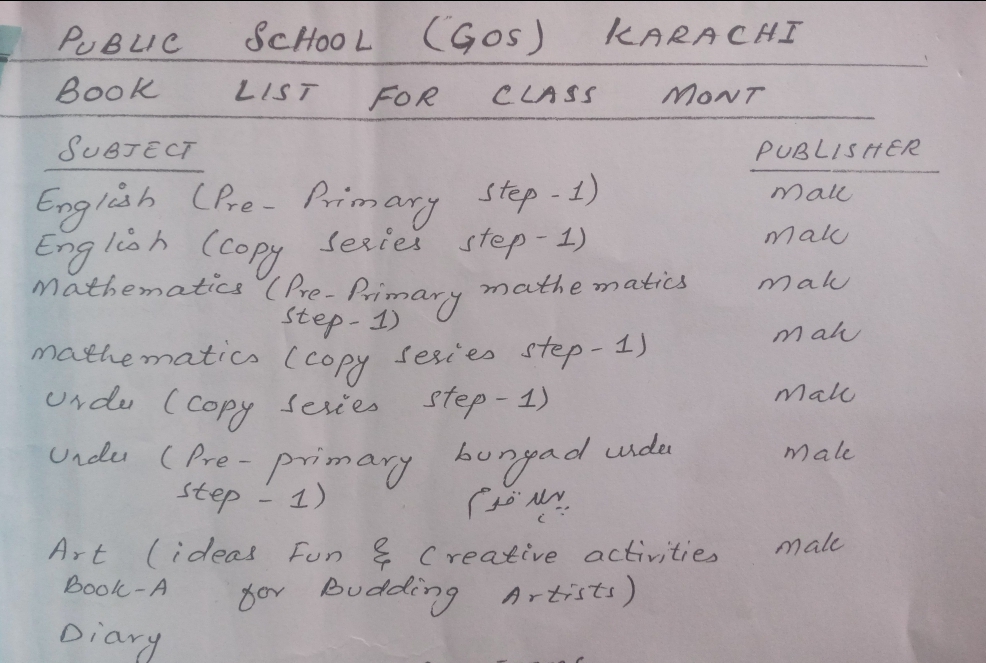 PUBLIC SCHOOL (GOS) KARACHI
BOOK LIST FOR CLASS MONT
SUBJECT PUBLISHER
English (Pre- Primary step-1) Mak
English (copy series step-1) Mak
Mathematics (Pre-Primary mathematics Mak
step-1)
mathematics (copy series step-1) Mak
Urdu (copy series step-1) Mak
Urdu (Pre-primary bunyad urdu Mak
step-1) پہلا قدم
Art (ideas Fun & Creative activities Mak
Book-A for Budding Artists)
Diary